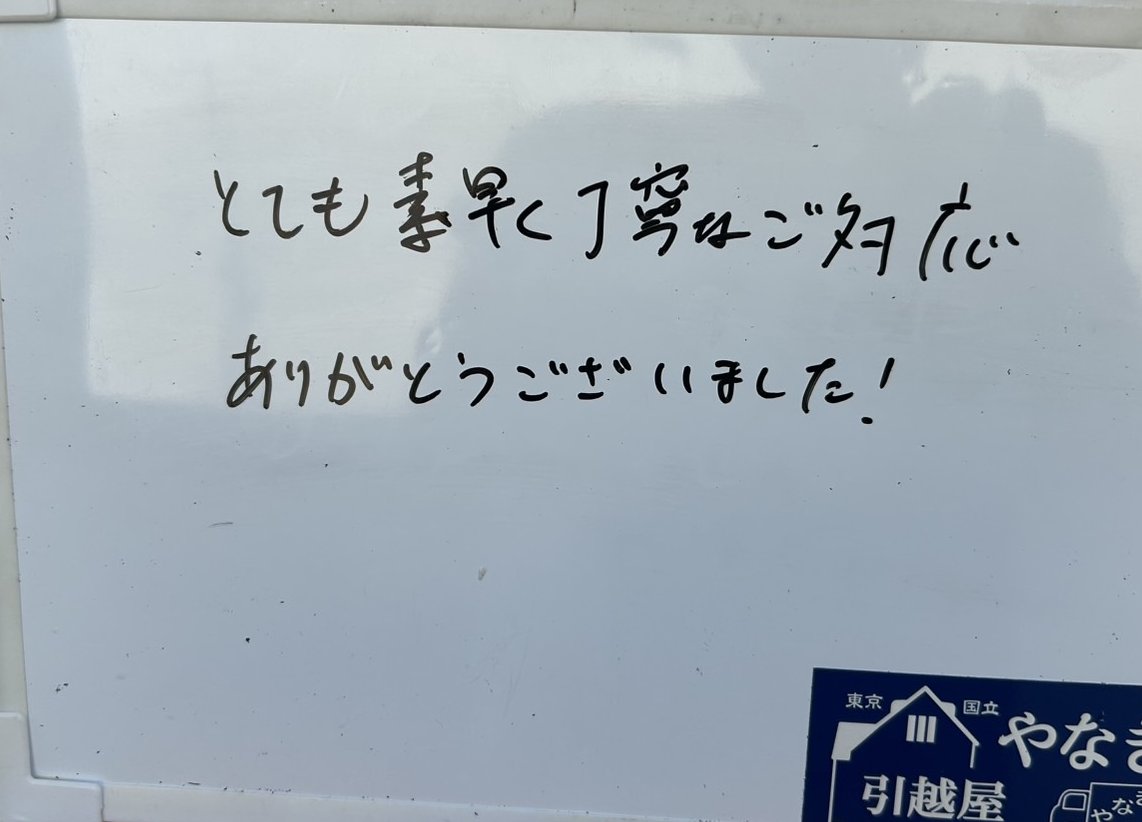 とても素早く丁寧なご対応
ありがとうございました!
東京 国立 やなぎ
引越屋
やなぎ